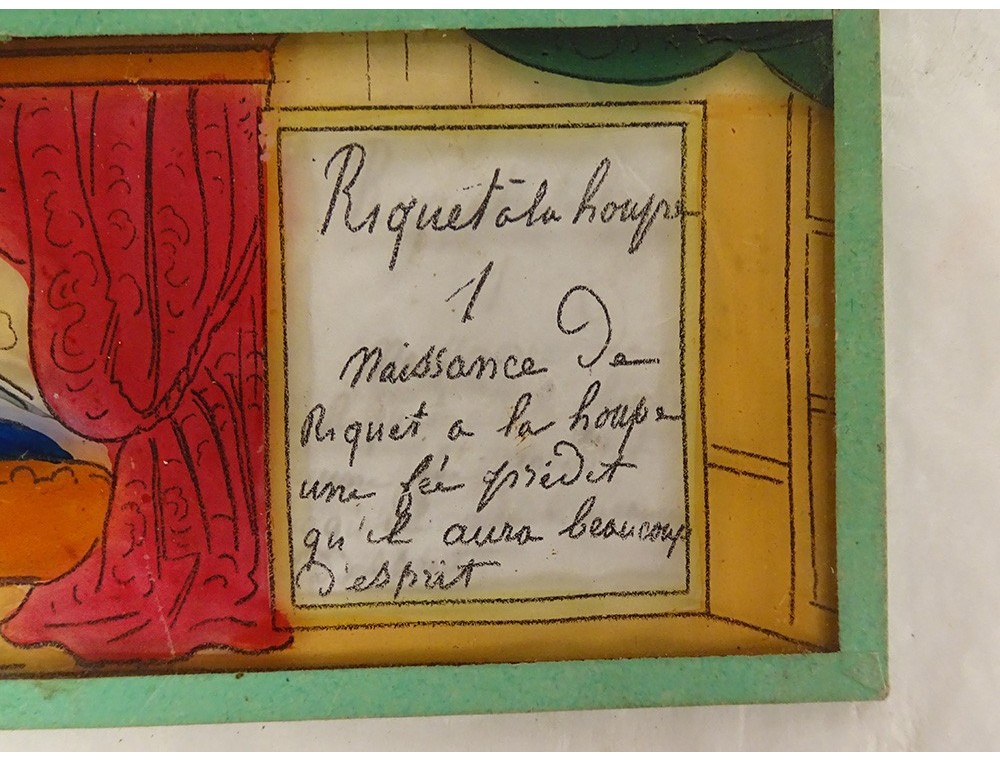 Riquet à la houpe
1
Naissance De
Riquet a la houpe
une fée prédit
qu'il aura beaucoup
D'esprit